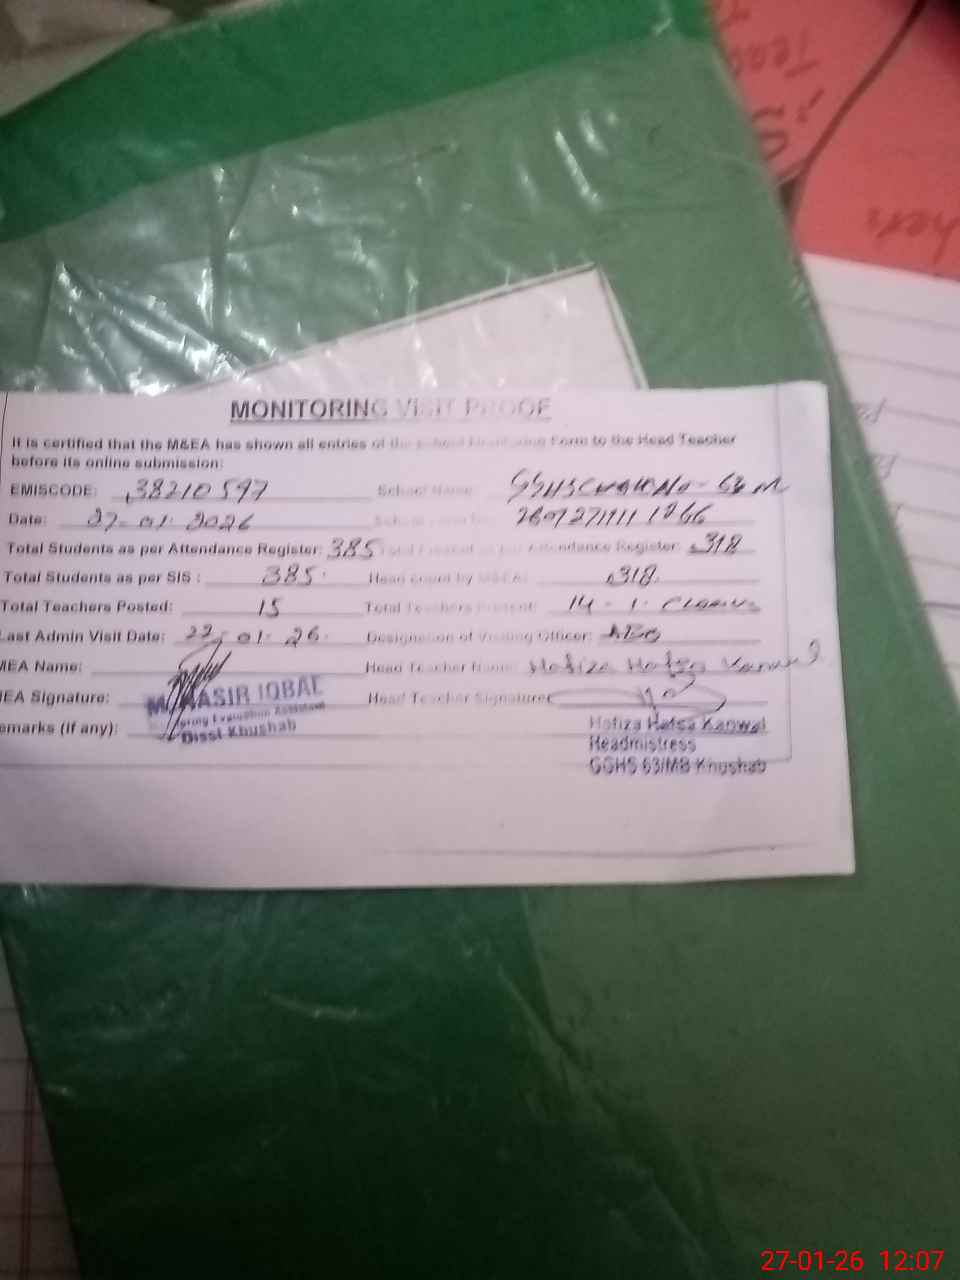 MONITORING VISIT PROOF
It is certified that the M&EA has shown all entries of the School Monitoring Form to the Head Teacher
before its online submission:
EMISCODE: 38210597 School Name:
Date: 27-01-2026 School
Total Students as per Attendance Register: 385 Total Present as per Attendance Register: 318
Total Students as per SIS : 385 Head count by M&EA: 318
Total Teachers Posted: 15 Total Teachers Present: 14 - 1
Last Admin Visit Date: 22-01-26 Designation of Visiting Officer: AEO
MEA Name: Head Teacher Name: Hafiza Hafsa Kanwal
MEA Signature: Head Teacher Signature:
NASIR IQBAL
Monitoring Evaluation Assistant
Disst Khushab
Remarks (if any):
Hafiza Hafsa Kanwal
Headmistress
GGHS 63/MB Khushab
27-01-26 12:07